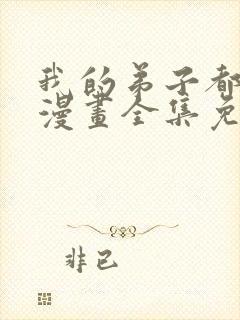 我的弟子都
漫畫全集免
非已